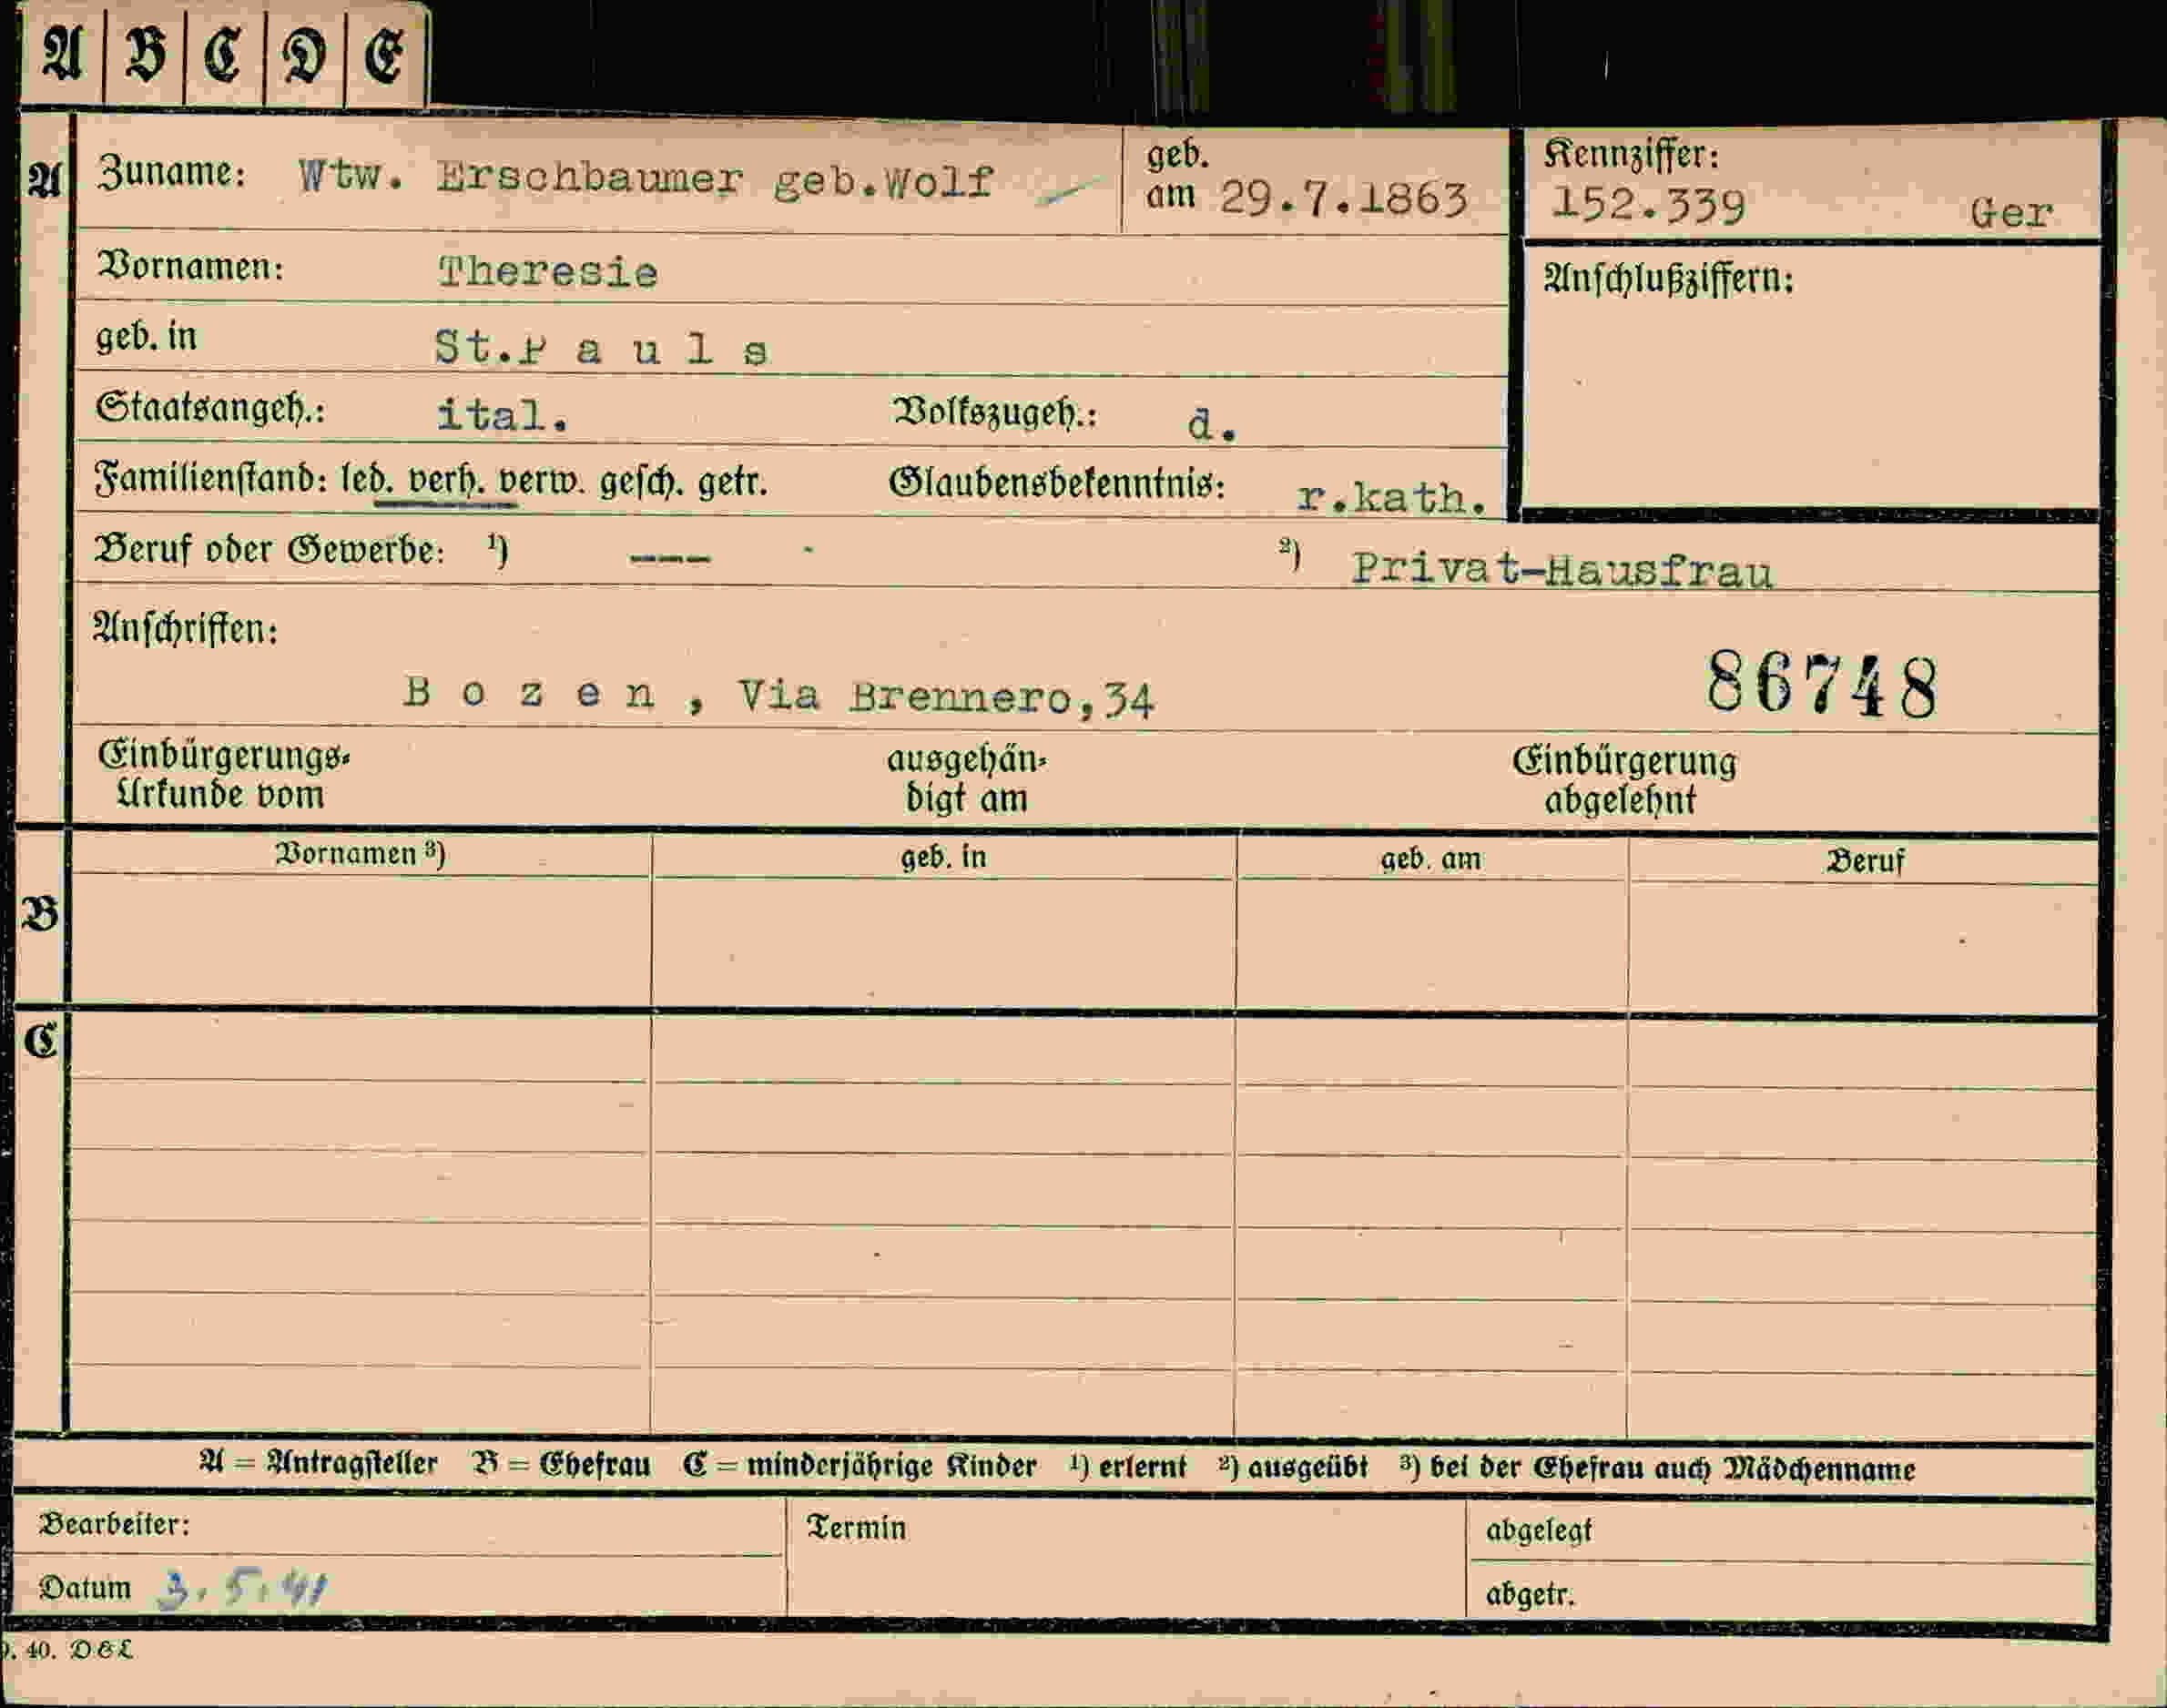 A B C D E
A Zuname: Wtw. Erschbaumer geb.Wolf
geb. am 29.7.1863
Kennziffer:
152.339 Ger
Vornamen: Theresie
Anschlußziffern:
geb. in St.P a u l s
Staatsangeh.: ital. Volkszugeh.: d.
Familienstand: led. verh. verw. gesch. getr. Glaubensbekenntnis: r.kath.
Beruf oder Gewerbe: 1) --- 2) Privat-Hausfrau
Anschriften:
B o z e n , Via Brennero,34 86748
Einbürgerungs- ausgehän- Einbürgerung
Urkunde vom digt am abgelehnt
Vornamen 3) geb. in geb. am Beruf
B
C
A = Antragsteller B = Ehefrau C = minderjährige Kinder 1) erlernt 2) ausgeübt 3) bei der Ehefrau auch Mädchenname
Bearbeiter: Termin abgelegt
Datum 3.5.41 abgetr.
40. D&L